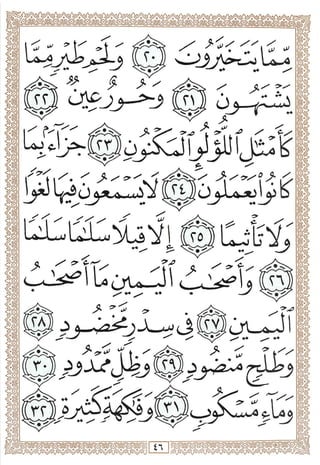 مِّمَّا يَتَخَيَّرُونَ ٢٠ وَلَحْمِ طَيْرٍ مِّمَّا
يَشْتَهُونَ ٢١ وَحُورٌ عِينٌ ٢٢
كَأَمْثَٰلِ ٱللُّؤْلُؤِ ٱلْمَكْنُونِ ٢٣ جَزَآءًۢ بِمَا
كَانُوا۟ يَعْمَلُونَ ٢٤ لَا يَسْمَعُونَ فِيهَا لَغْوًا
وَلَا تَأْثِيمًا ٢٥ إِلَّا قِيلًا سَلَٰمًا سَلَٰمًا
٢٦ وَأَصْحَٰبُ ٱلْيَمِينِ مَآ أَصْحَٰبُ
ٱلْيَمِينِ ٢٧ فِى سِدْرٍ مَّخْضُودٍ ٢٨
وَطَلْحٍ مَّنضُودٍ ٢٩ وَظِلٍّ مَّمْدُودٍ ٣٠
وَمَآءٍ مَّسْكُوبٍ ٣١ وَفَٰكِهَةٍ كَثِيرَةٍ ٣٢
٤٦